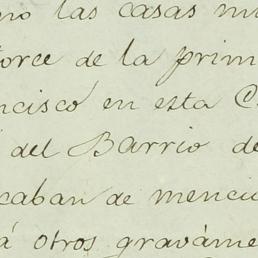 no las casas nu
torce de la prim
ncisco en esta C
del Barrio de
caban de menciu
á otros graváme